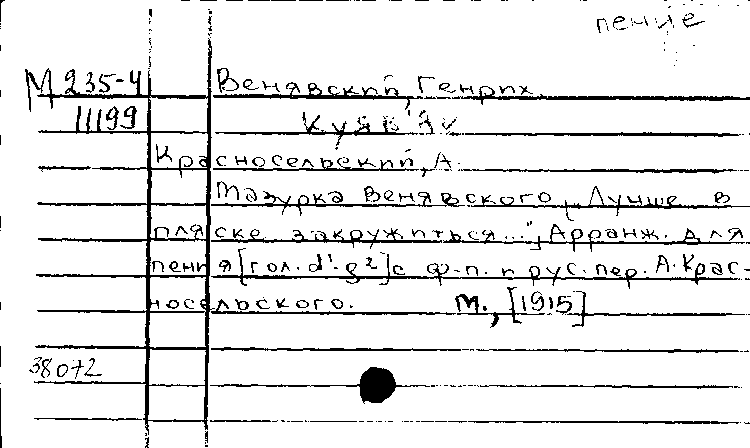 пение
М 235-4 Венявский, Генрих.
11199 Куяв'як
Красносельский, А.
Мазурка Венявского „Лучше в
пляске закружиться...", Арранж. для
пения [гол. d¹-g²] с ф-п. и рус. пер. А. Крас-
носельского. М., [1915]
38072